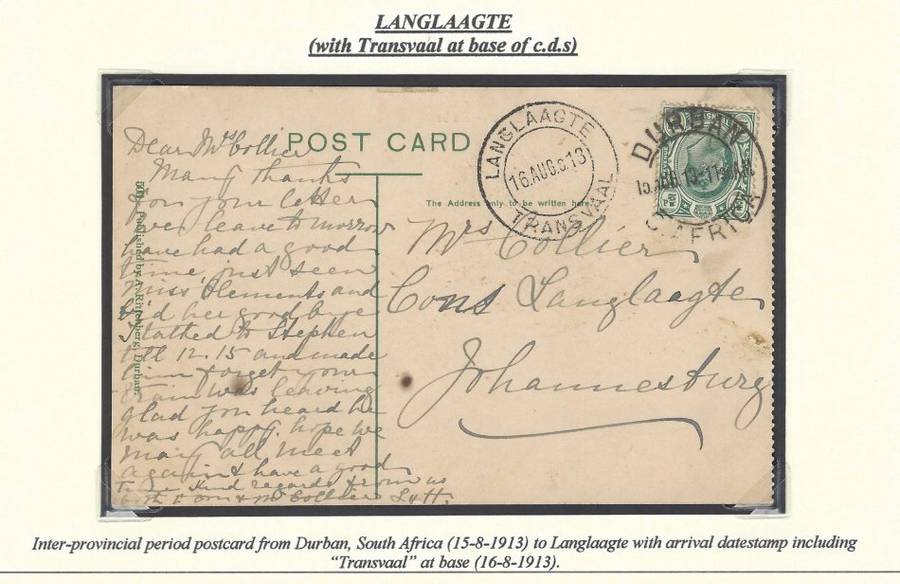 LANGLAAGTE
(with Transvaal at base of c.d.s)
POST CARD
The Address only to be written here
LANGLAAGTE
16 AUG. 13
TRANSVAAL
DURBAN
15 AUG 13
S. AFRICA
Dear Mrs Collier
Many thanks
for your letter
We leave tomorrow
have had a good
time just seen
Miss Clements and
bid her good bye
I talked to Stephen
till 12.15 and made
him forget your
train was leaving
glad you heard he
was happy. hope we
may all meet
again & have a good
Kind regards from us
both to & Mr Collier
Published by A. Rittenberg, Durban.
Mrs Collier
Cons Langlaagte
Johannesburg
Inter-provincial period postcard from Durban, South Africa (15-8-1913) to Langlaagte with arrival datestamp including
“Transvaal” at base (16-8-1913).